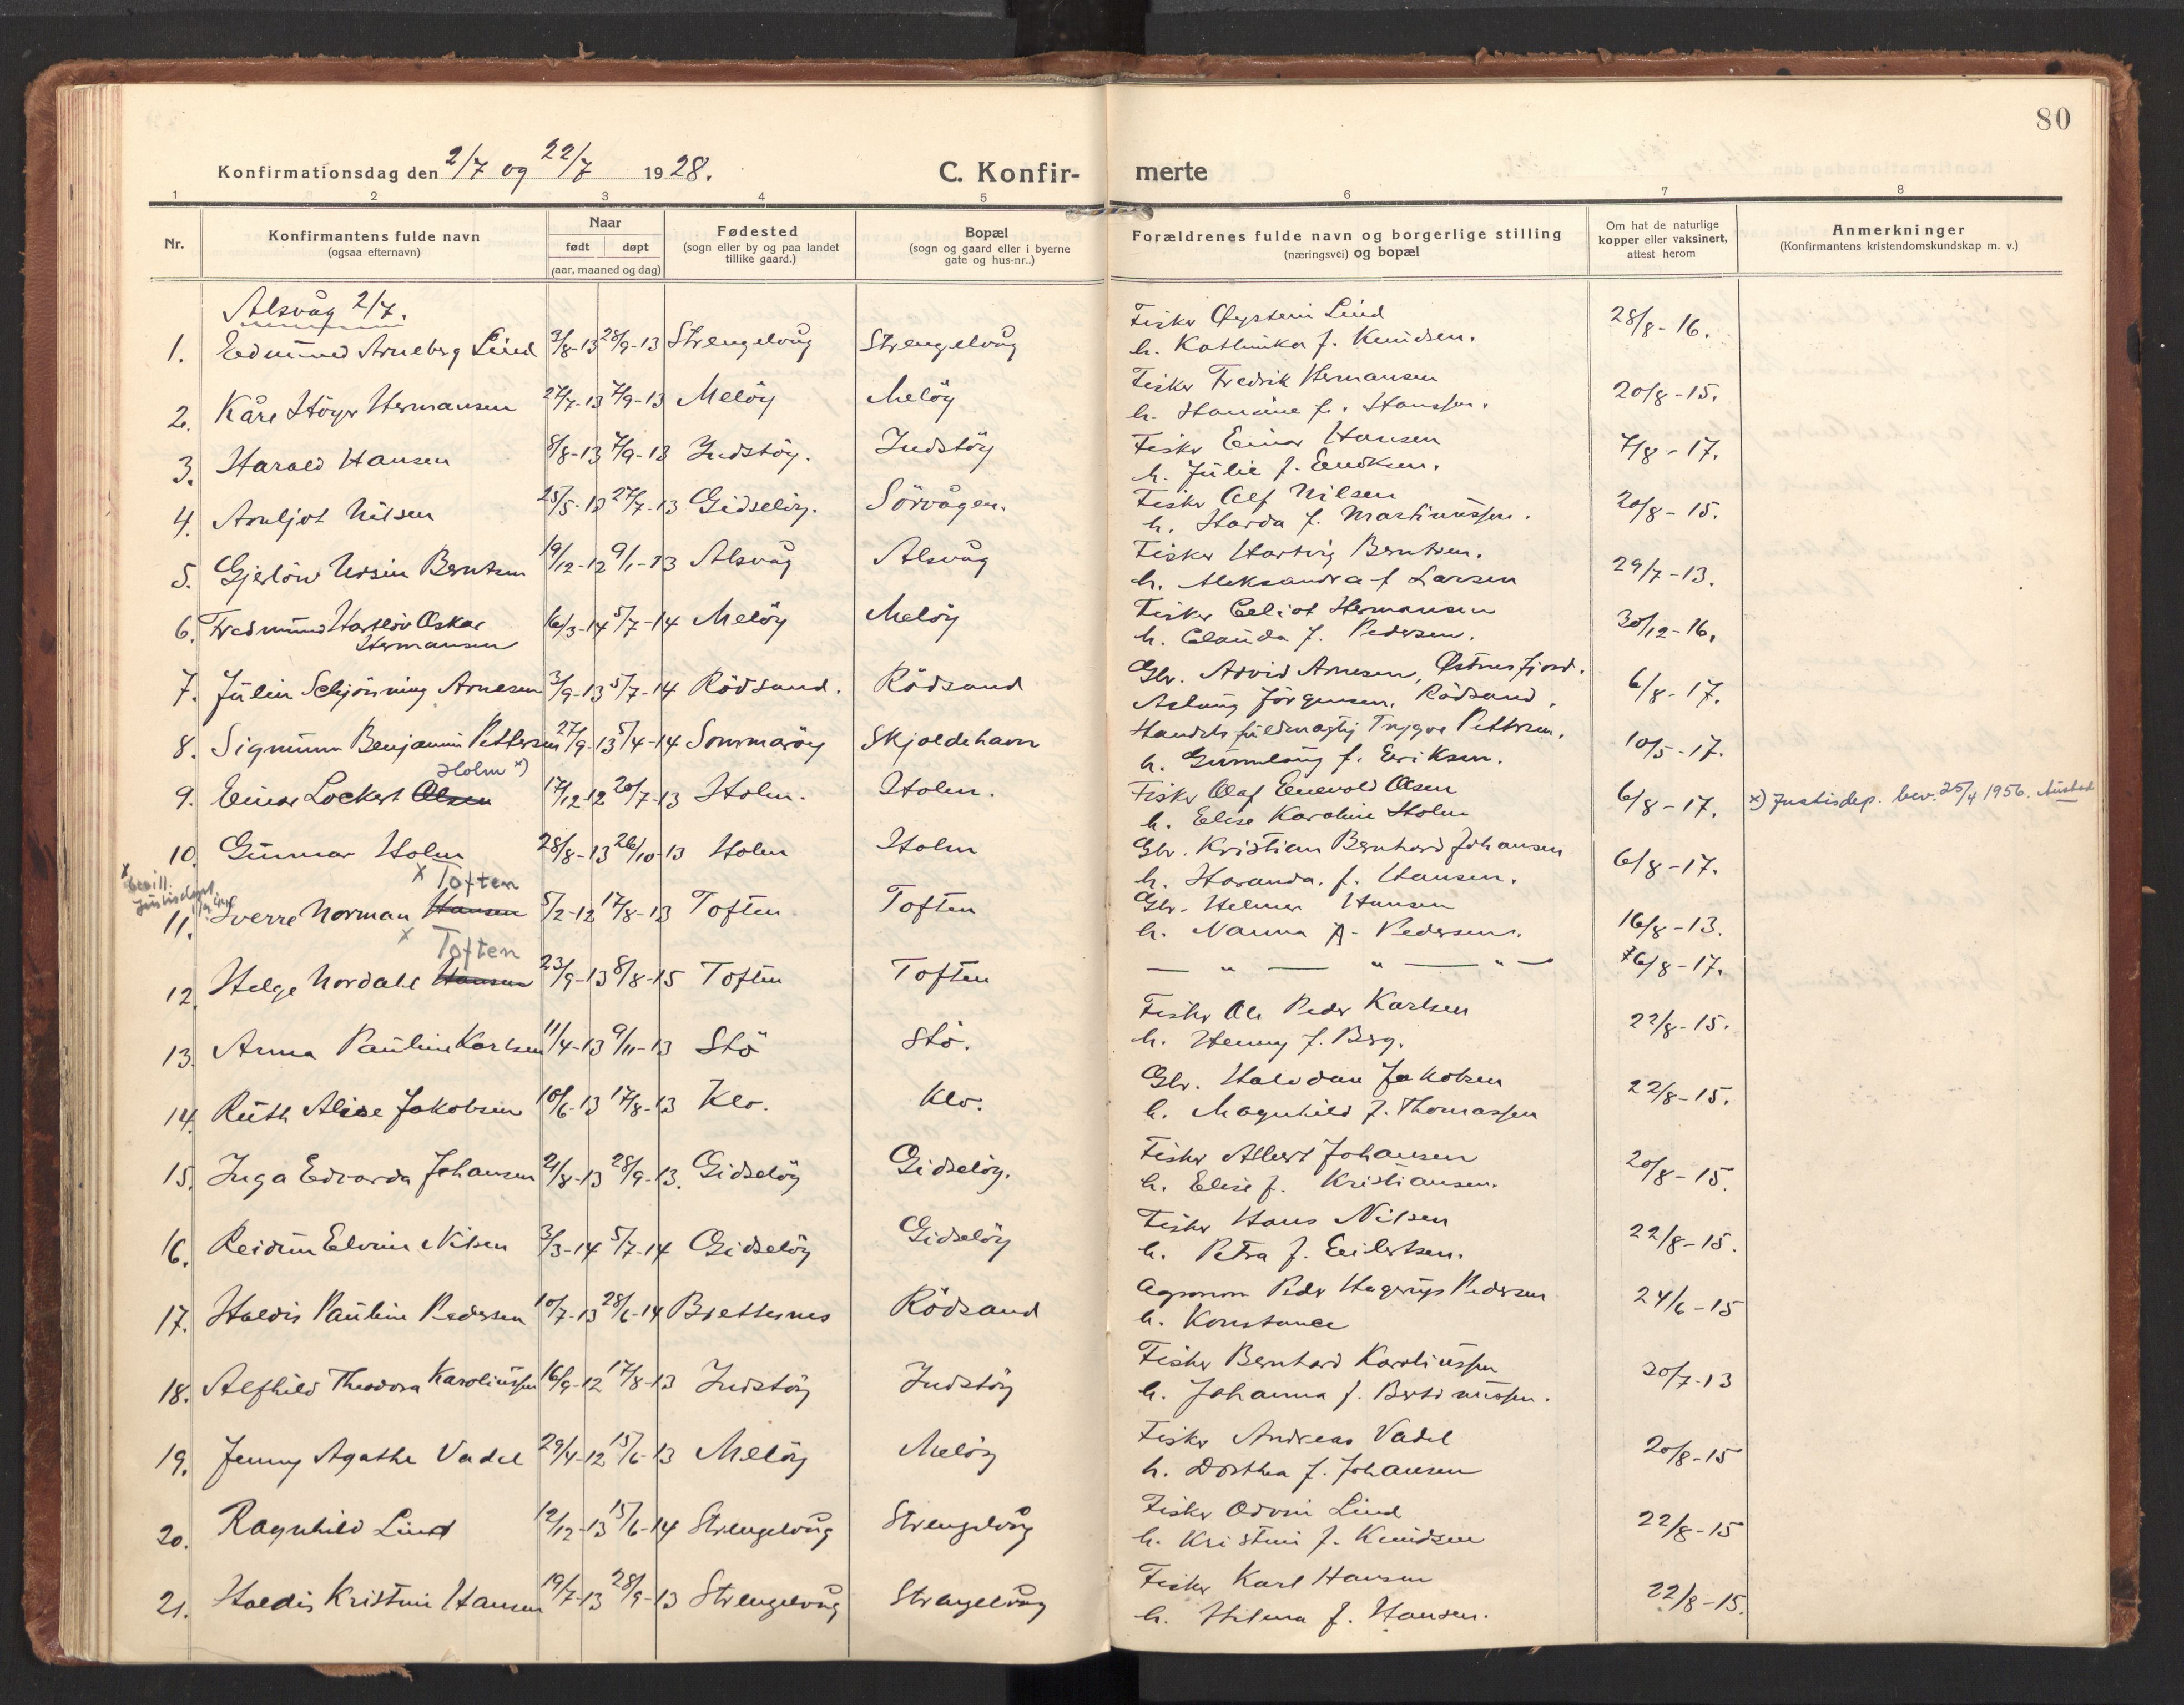 80
Konfirmationsdag den 2/7 og 22/7 1928.
C. Konfir-
merte
1 2 3 4 5 6 7 8
Nr.
Konfirmantens fulde navn
(ogsaa efternavn)
Naar
født døpt
(aar, maaned og dag)
Fødested
(sogn eller by og paa landet
tillike gaard.)
Bopæl
(sogn og gaard eller i byerne
gate og hus-nr..)
Forældrenes fulde navn og borgerlige stilling
(næringsvei) og bopæl
Om hat de naturlige
kopper eller vaksinert,
attest herom
Anmerkninger
(Konfirmantens kristendomskundskap m. v.)
Alsvåg 2/7.
1. Edmund Arneberg Lind 3/8-13 28/9-13 Strengelvåg Strengelvåg Fisker Øystein Lind 28/8-16.
h. Kathinka f. Knudsen.
2. Kåre Höyer Hermansen 27/7-13 7/9-13 Melöy Melöy Fisker Fredrik Hermansen 20/8-15.
h. Hansine f. Hanssen.
3. Harald Hansen 8/8-13 7/9-13 Indstöy. Indstöy Fisker Einar Hansen 7/8-17.
h. Julie f. Hendksen.
4. Arnljot Nilsen 25/5-13 27/7-13 Gidselöy. Sörvågen. Fisker Alf Nilsen 20/8-15.
h. Harda f. Martinussen.
5. Gjerlöw Ursin Berntsen 19/12-12 9/1-13 Alsvåg Alsvåg Fisker Hartvig Berntsen. 29/7-13.
h. Aleksandra f Larsen
6. Fredmund Hartlöv Oskar 16/3-14 5/7-14 Melöy Melöy Fisker Eeliot Hermansen 30/12-16.
Hermansen h. Clauda f. Pedersen.
7. Julin Schjönning Arnesen 3/9-13 5/7-14 Rödsand. Rödsand Gbr. Arvid Arnesen, Østnesfjord. 6/8-17.
Aslaug Jörgensen, Rödsand.
8. Sigmunn Benjamin Pettersen 27/9-13 5/4-14 Sommaröy Skjoldehavn Handelsfuldmægtig Trygve Pettersen. 10/5-17.
h. Gunnlaug f. Eriksen.
Holm x)
9. Einar Lockert Olsen 17/12-12 20/7-13 Holm. Holm. Fisker Olaf Enevold Olsen 6/8-17. x) Justisdep. bev. 25/4 1956. Austad
h. Elise Karoline Holm
10. Gunnar Holm 28/8-13 26/10-13 Holm Holm Gbr. Kristian Bernhard Johansen 6/8-17.
h. Haranda. f. Hansen.
x Toften
x bevill.
Justisdept.
11. Sverre Norman Hansen 5/2-12 17/8-13 Toften Toften Gbr. Helmer Hansen 16/8-13.
h. Nanna A. Pedersen.
x Toften
12. Helge Nordahl Hansen 23/9-13 8/8-15 Toften Toften — " — " — " — 6/8-17.
13. Anna Pauline Karlsen 11/4-13 9/11-13 Stö Stö. Fisker Ole Peder Karlsen 22/8-15.
h. Henny f. Berg.
14. Ruth Alise Jakobsen 10/6-13 17/8-13 Klo. Klo. Gbr. Halvdan Jakobsen 22/8-15.
h. Magnhild f. Thomassen
15. Inga Edvarda Johansen 21/8-13 28/9-13. Gidselöy Gidselöy. Fisker Albert Johansen 20/8-15.
h. Elise f. Kristiansen.
16. Reidun Elvine Nilsen 3/3-14 5/7-14 Gidselöy Gidselöy Fisker Hans Nilsen 22/8-15.
h. Petra f. Eilertsen.
17. Haldis Pauline Pedersen 10/7-13 28/6-14 Brettesnes Rödsand Agronom Peder Hagerup Pedersen 24/6-15
h. Konstance
18. Alfhild Theodora Karolinssen 16/9-12 17/8-13 Indstöy Indstöy Fisker Bernhard Karolinssen 20/7-13
h. Johanna f. Bertinussen.
19. Jenny Agathe Vadel 29/4-12 15/6-13 Melöy Melöy Fisker Andreas Vadel 20/8-15
h. Dorthea f. Johansen
20. Ragnhild Lind 12/12-13 15/6-14 Strengelvåg Strengelvåg Fisker Odvin Lind 22/8-15
h. Kristine f. Knudsen
21. Haldis Kristine Hansen 19/7-13 28/9-13 Strengelvåg Strengelvåg Fisker Karl Hansen 22/8-15.
h. Hilma f. Hansen.